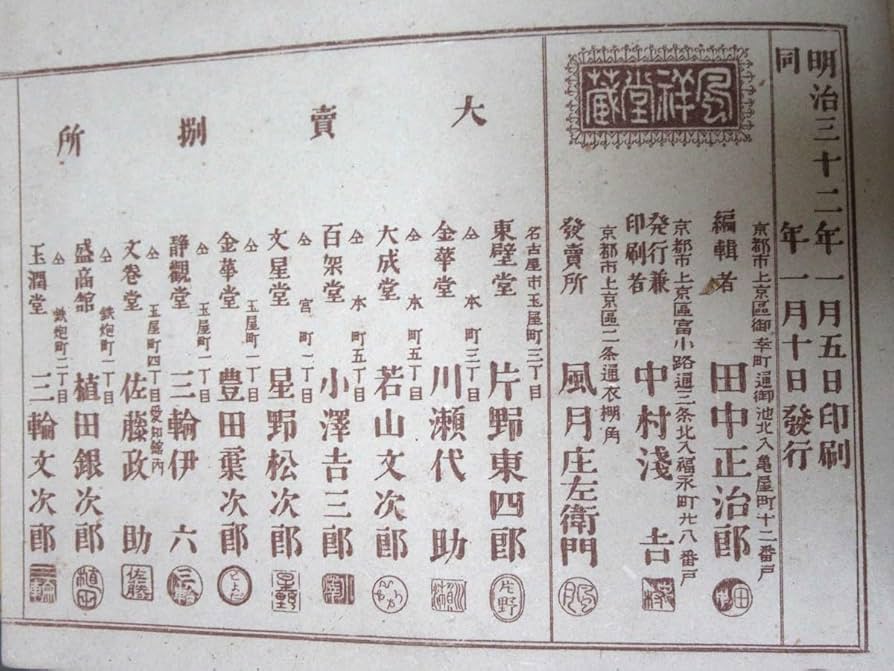 明治三十二年一月五日印刷
同年一月十日發行
風祥堂蔵
京都市上京區御幸町通御池北入亀屋町十二番戸
編輯者 田中正治郎
京都市上京區富小路通三条北入福永町廿八番戸
発行兼印刷者 中村淺吉
京都市上京區二条通衣棚角
發賣所 風月庄左衛門
大賣捌所
名古屋市玉屋町三丁目
東壁堂 片野東四郎 片野
仝 本町三丁目
金華堂 川瀬代助
仝 本町五丁目
大成堂 若山文次郎
仝 本町五丁目
百架堂 小澤吉三郎
仝 宮町一丁目
文星堂 星野松次郎 星野
仝 玉屋町二丁目
金華堂 豊田葉次郎
仝 玉屋町一丁目
静觀堂 三輪伊六 三輪
仝 玉屋町四丁目愛知館内
文巻堂 佐藤政助 佐藤
仝 鉄炮町一丁目
盛商舘 植田銀次郎 植田
仝 鉄炮町二丁目
玉潤堂 三輪文次郎 三輪